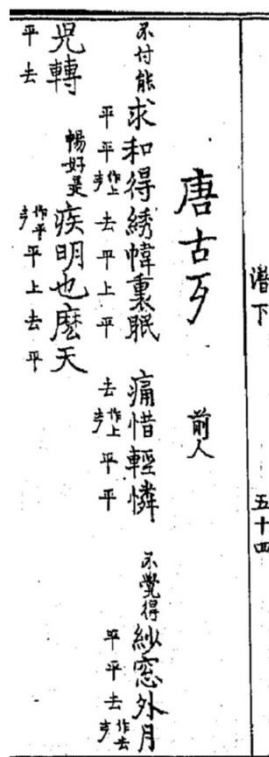 潛下 五十四
唐古歹 前人
不付能求和得綉幃裏眠 痛惜輕憐 不覺得紗窓外月
平平作上去平上平 去作上平平 平平去作去
児轉 暢好是疾明也麽天
平去 作平平上去平